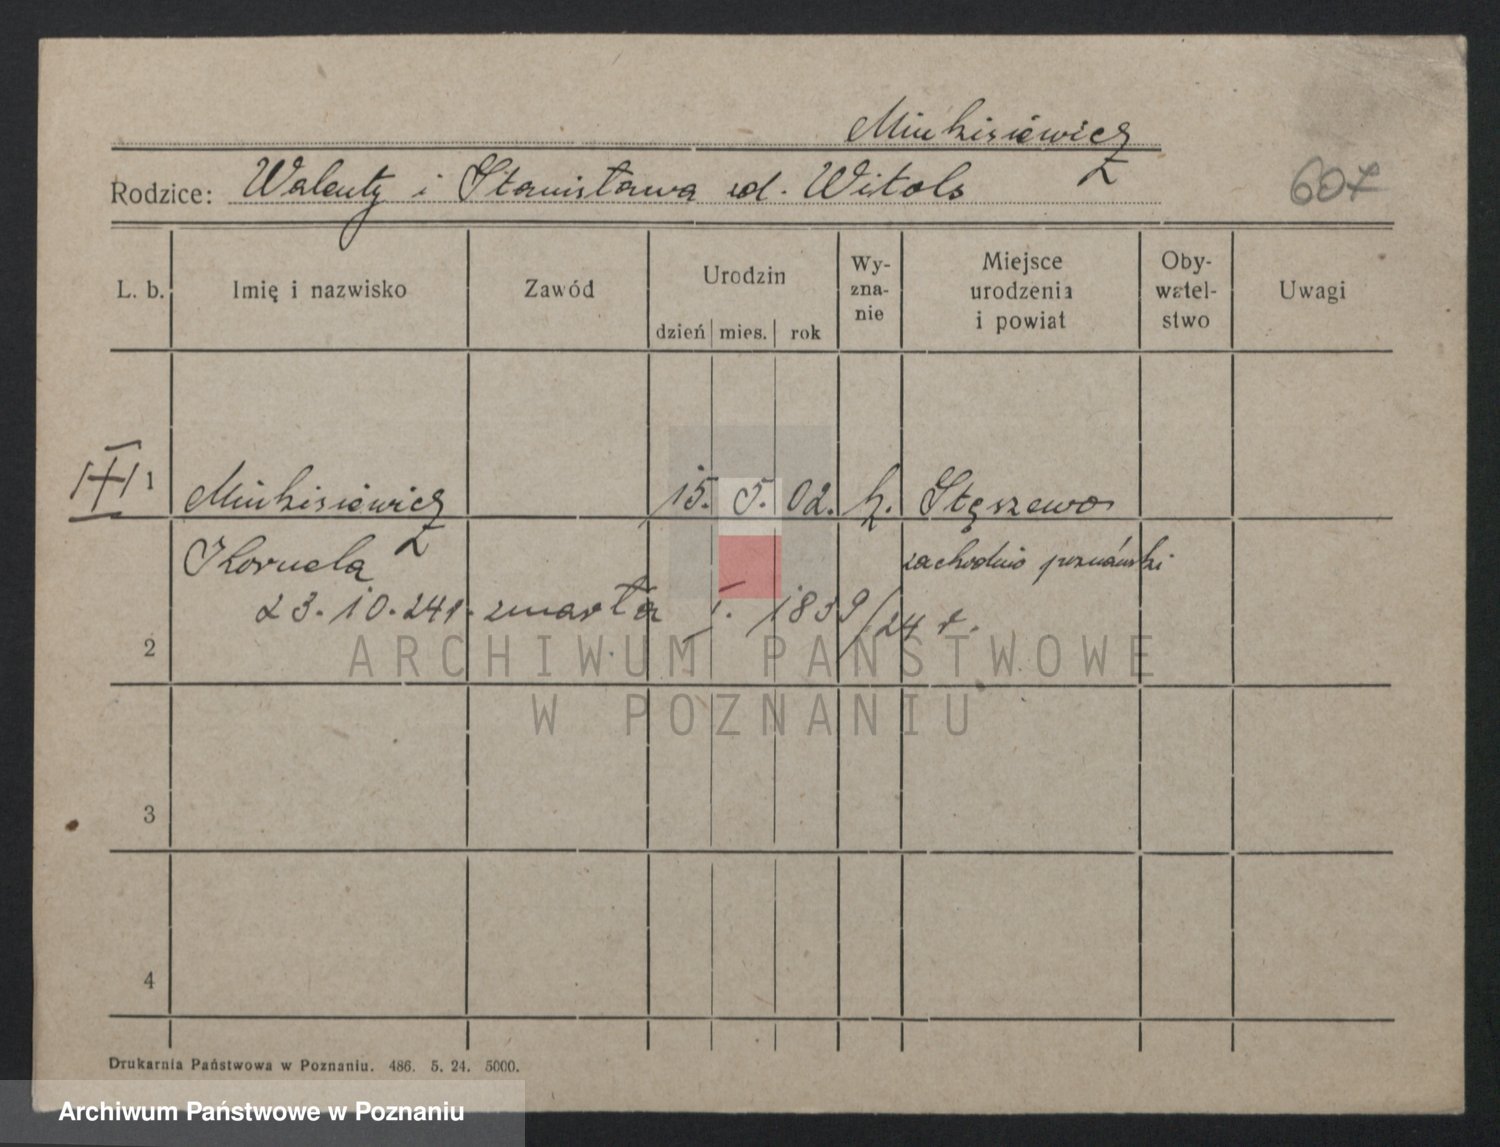 Minkisiewicz
Rodzice: Walenty i Stanisława ud. Witols
607
L. b. Imię i nazwisko Zawód Urodzin dzień mies. rok Wy-zna-nie Miejsce urodzenia i powiat Oby-watel-stwo Uwagi
1 Minkisiewicz 15. 5. 02. k. Stęszewo
Kornela zachodnio poznański
23. 10. 24 r. zmarła 1839/24 r.
2
ARCHIWUM PAŃSTWOWE
W POZNANIU
3
4
Drukarnia Państwowa w Poznaniu. 486. 5. 24. 5000.
Archiwum Państwowe w Poznaniu